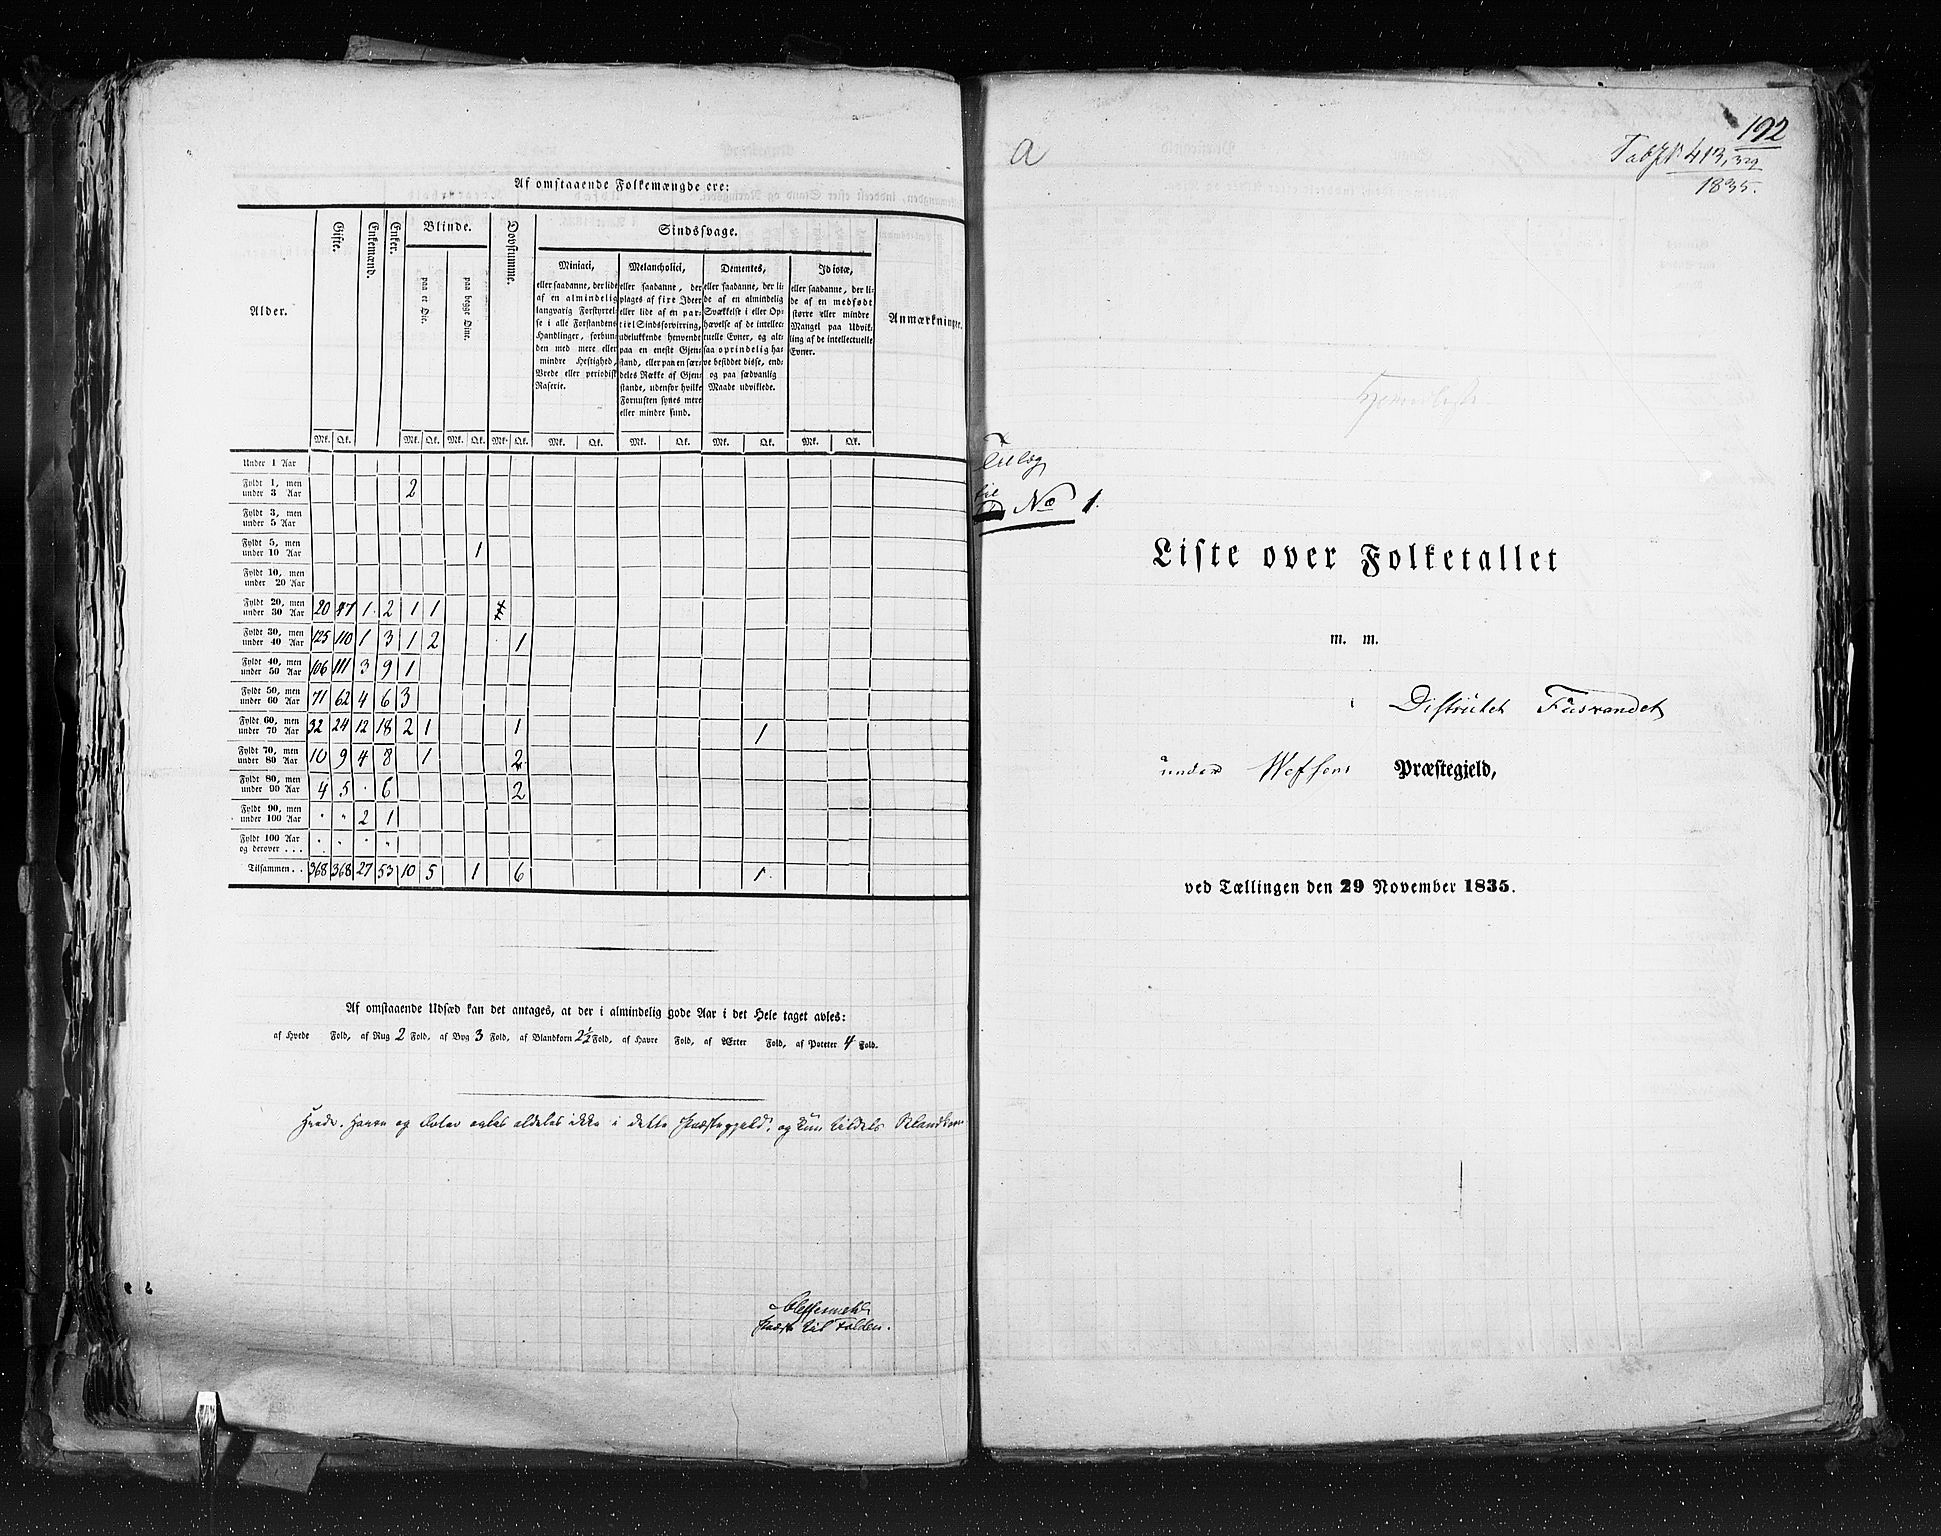 Af omstaaende Folkemængde ere:
Alder. Gifte. Enkemænd. Enker. Blinde. paa et Øie. paa begge Øine. Døvstumme. Sindssvage. Anmærkninger.
Miniaci,
eller saadanne, der lide
af en almindelig
langvarig Forstyrrel-
se i alle Forstandens
Handlinger, forbun-
den med mere eller
mindre Heftighed,
Vrede eller periodisk
Raserie.
Melancholici,
eller saadanne, der
plages af fixe Ideer
eller lide af en par-
tiel Sindsforvirring,
udelukkende henvendt
paa en eneste Gjen-
stand, eller paa en sær-
deles Række af Gjen-
stande, udenfor hvilke
Fornuften synes mere
eller mindre sund.
Dementes,
eller saadanne, der li-
de af en almindelig
Svækkelse i eller Op-
hævelse af de intellec-
tuelle Evner, og alt-
saa oprindelig ha-
ve besiddet disse, end-
og paa sædvanlig
Maade udviklede.
Idiotæ,
eller saadanne, der li-
de af en medfødt
større eller mindre
Mangel paa Udvik-
ling af de intellectuelle
Evner.
Mk. Qk. Mk. Qk. Mk. Qk. Mk. Qk. Mk. Qk. Mk. Qk. Mk. Qk. Mk. Qk.
Under 1 Aar
Fyldt 1, men under 3 Aar 2
Fyldt 3, men under 5 Aar
Fyldt 5, men under 10 Aar 1
Fyldt 10, men under 20 Aar
Fyldt 20, men under 30 Aar 20 47 1 2 1 1
Fyldt 30, men under 40 Aar 125 110 1 3 1 2 1
Fyldt 40, men under 50 Aar 106 111 3 9 1
Fyldt 50, men under 60 Aar 71 62 4 6 3
Fyldt 60, men under 70 Aar 32 24 12 18 2 1 1 1
Fyldt 70, men under 80 Aar 10 9 4 8 1 2
Fyldt 80, men under 90 Aar 4 5 . 6 2
Fyldt 90, men under 100 Aar " " 2 1
Fyldt 100 Aar og derover . . . " " " "
Tilsammen . . 368 368 27 53 10 5 1 6 1
Af omstaaende Udsæd kan det antages, at der i almindelig gode Aar i det Hele taget avles:
af Hvede Fold, af Rug 2 Fold, af Byg 3 Fold, af Blandkorn 2½ Fold, af Havre Fold, af Ærter Fold, af Poteter 4 Fold.
Hvede, Havre og Erter avles aldeles ikke i dette Præstegjeld, og kun tildels Blandkorn
Præst til Folden.
192
413
1835.
a
Tillæg
til
No 1.
Liste over Folketallet
m. m.
i Districtet Fusvandet
under Wefsens Præstegjeld,
ved Tællingen den 29 November 1835.